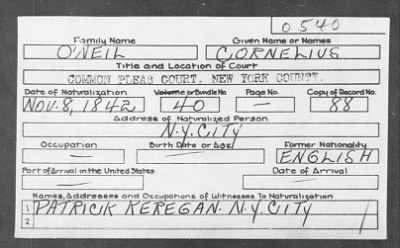 0540
Family Name Given Name or Names
O'NEIL CORNELIUS
Title and Location of Court
COMMON PLEAS COURT. NEW YORK COUNTY.
Date of Naturalization Volume or Bundle No. Page No. Copy of Record No.
NOV. 8, 1842 40 — 88
Address of Naturalized Person
N.Y. CITY
Occupation Birth Date or Age Former Nationality
— — ENGLISH
Port of Arrival in the United States Date of Arrival
— —
Names, Addresses and Occupations of Witnesses To Naturalization
1 PATRICK KEREGAN. N.Y. CITY
2